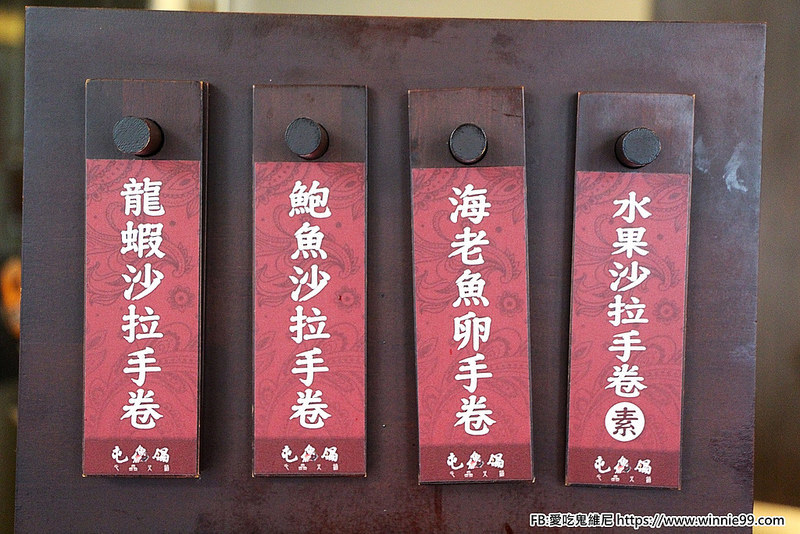 龍蝦沙拉手卷
鮑魚沙拉手卷
海老魚卵手卷
水果沙拉手卷素
FB:愛吃鬼維尼 https://www.winnie99.com